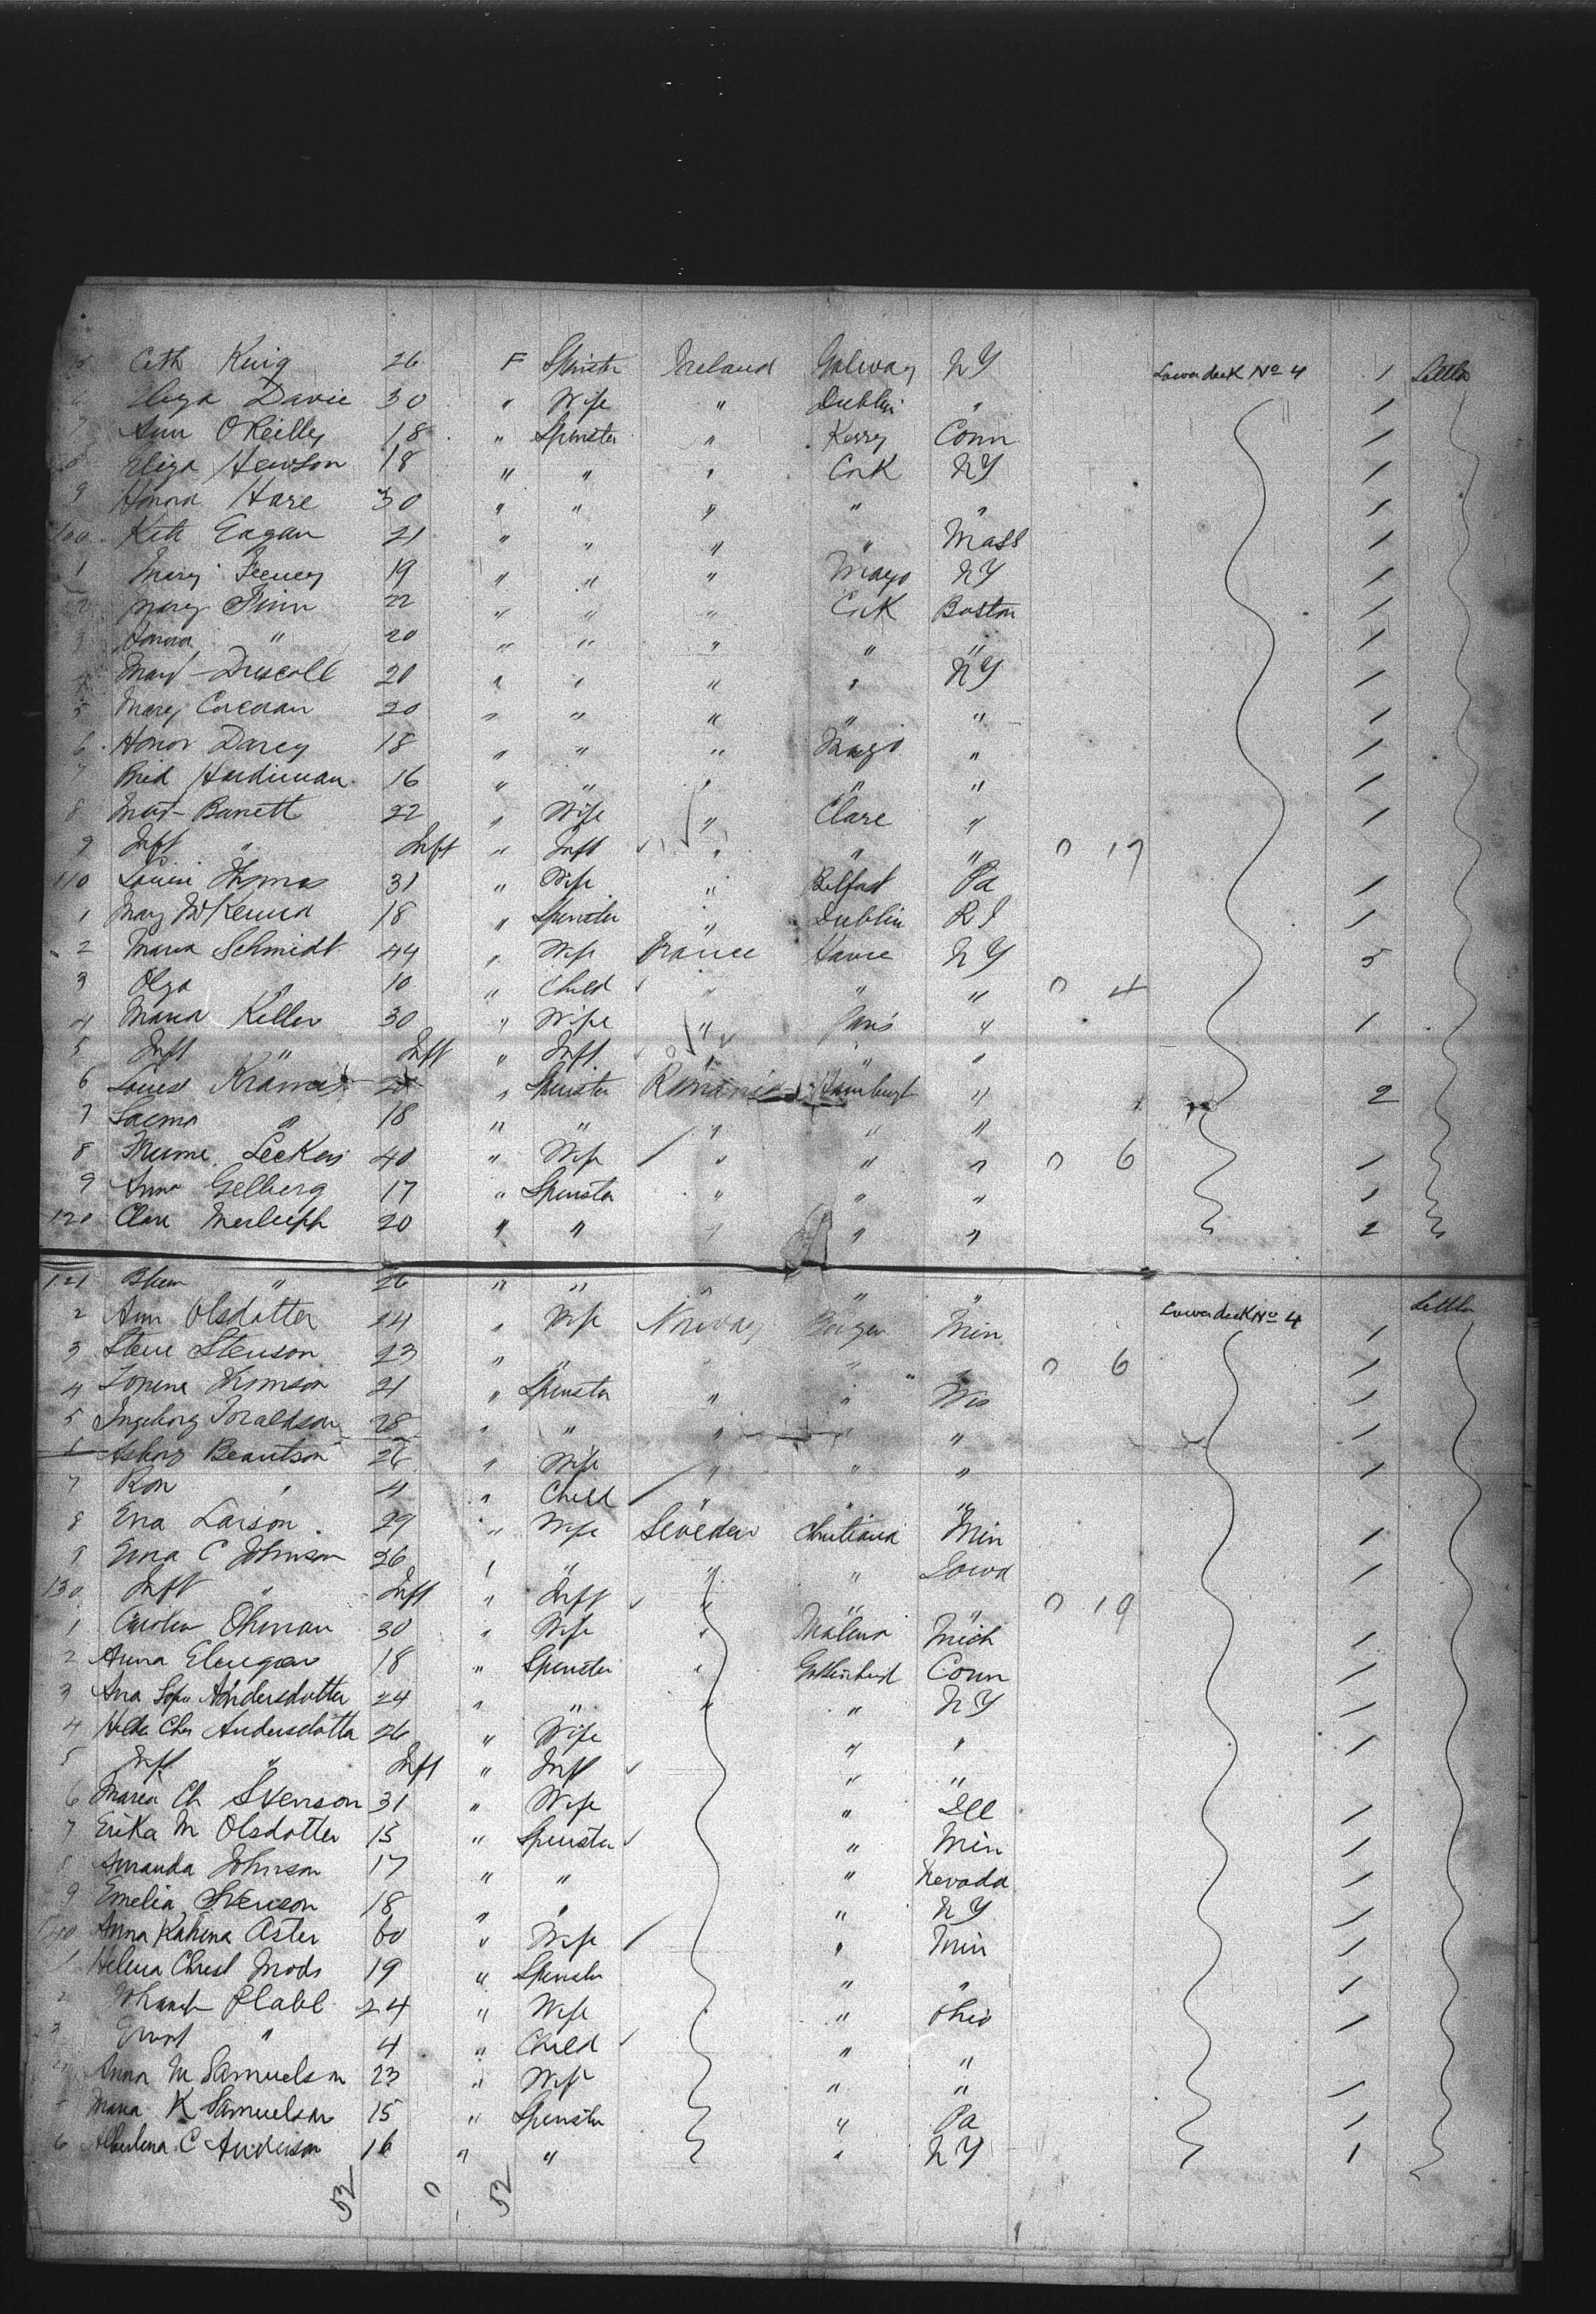 Cath King 26 F Spinster Ireland Galway NY Lower deck No 4 1 Settler
Eliza Davie 30 " Wife " Dublin " 1
7 Ann OReilly 18 " Spinster " Kerry Conn 1
8 Eliza Hewson 18 " " " Cork NY 1
9 Honora Hare 30 " " " " " 1
100 Kate Eagan 21 " " " " Mass 1
1 Mary Feeney 19 " " " Mayo NY 1
2 Mary Finn 22 " " " Cork Boston 1
3 Honora " 20 " " " " " 1
4 Mary Driscoll 20 " " " " NY 1
5 Mary Corcoran 20 " " " " " 1
6 Honor Darcy 18 " " " Mayo " 1
7 Brid Hardiman 16 " " " " " 1
8 Mary Barrett 22 " Wife " Clare " 1
9 Inft " Inft " Inft " " " 0 17
110 Louise Thomas 31 " Wife " Belfast Pa 1
1 Mary McKenna 18 " Spinster " Dublin R I 1
2 Maria Schmidt 44 " Wife France Havre NY 5
3 Olga " 10 " Child " " " 0 4
4 Maria Keller 30 " Wife " Paris " 1
5 Inft " Inft " Inft " " "
6 Louise Kramer " Spinster Romania Hamburgh " 2
7 18 " " " " "
8 40 " Wife " " " 0 6 1
9 Anna Gelberg 17 " Spinster " " " 1
120 Clara 20 " " " " " 2
121 " 26 " " " " "
2 Ann Olsdotter " Wife Norway Bergen Min Lower deck No 4 1 Settler
3 Stenson 23 " " " " " 0 6 1
4 21 " Spinster " " Wis 1
5 Ingeborg Toraldson 28 " " " " " 1
26 " Wife " " " 1
7 " 4 " Child " " "
8 Eva Larson 29 " Wife Sweden Christiania Min 1
9 C Johnson 26 " " " " Iowa 1
130 Inft " Inft " Inft " " " 0 19
1 Ohman 30 " Wife " Malmo Mich 1
2 Anna 18 " Spinster " Gothenburg Conn 1
3 Andersdotter 24 " " " " NY 1
4 Andersdotter 26 " Wife " " 1
5 Inft " Inft " Inft " "
6 Maria Ch Svenson 31 " Wife " Ill 1
7 Erika M Olsdotter 15 " Spinster " Min 1
8 Amanda Johnson 17 " " " Nevada 1
9 Emelia Svenson 18 " " " NY 1
140 Anna Aster 60 " Wife " Min 1
1 Helena Christ Mods 19 " Spinster " " 1
2 24 " Wife " Ohio 1
3 " 4 " Child " "
Anna M Samuelson 23 " Wife " " 1
Maria K Samuelson 15 " Spinster " Pa 1
6 C Anderson 16 " " " NY 1
52 0 52